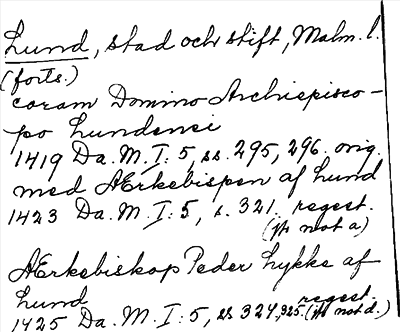 Lund, stad och stift, Malm. l.
(forts.)
coram Domino Archiepisco-
po Lundensi
1419 Da. M. I: 5, ss. 295, 296. orig.
med Ærkebispen af Lund
1423 Da. M. I: 5, s. 321. regest.
(jfr mot a)
Ærkebiskop Peder Lykke af
Lund
1425 Da. M. I: 5, ss 324, 325. regest. (jfr mot d.)